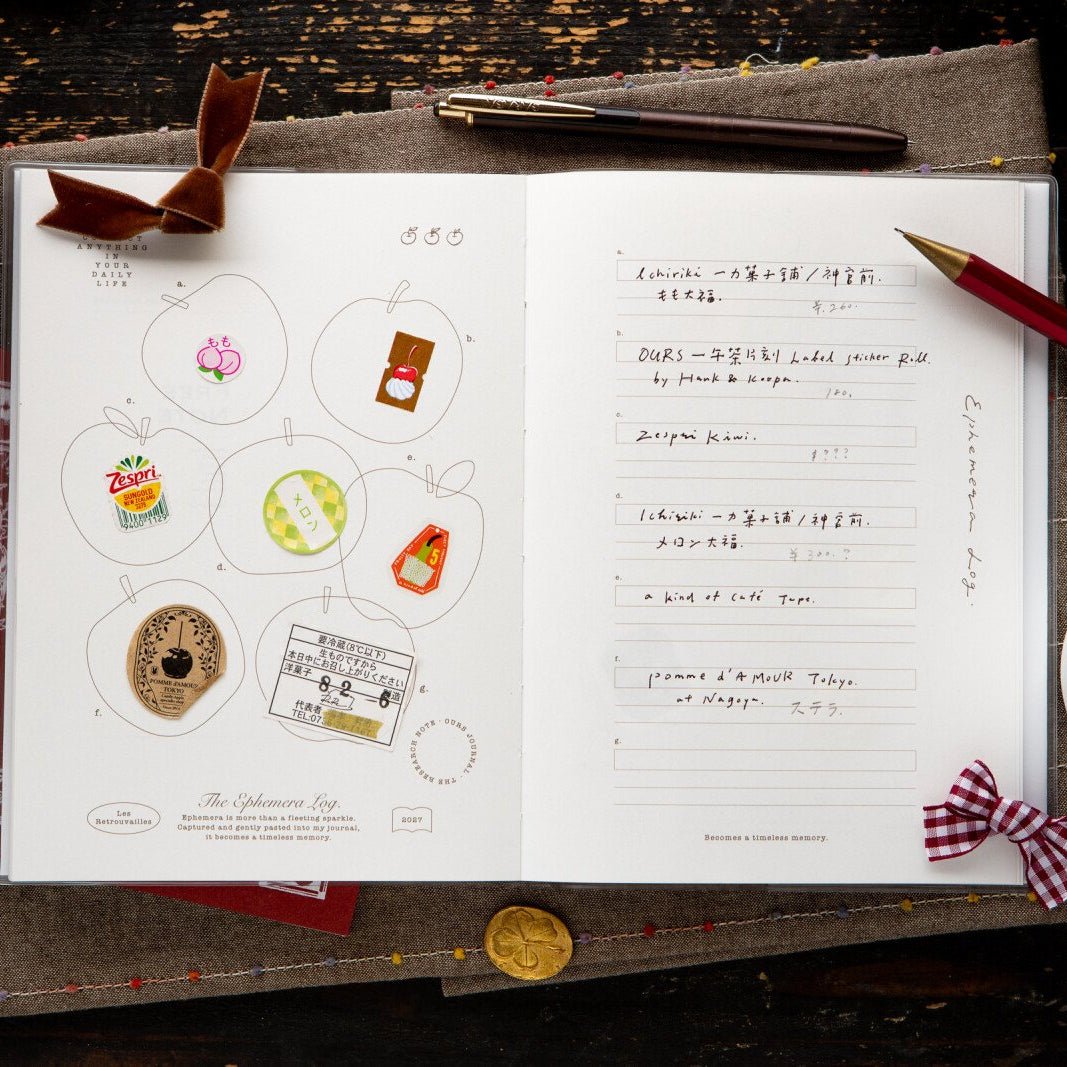 ANYTHING
IN
YOUR
DAILY
LIFE
a.
もも
b.
c.
Zespri
SUNGOLD
NEW ZEALAND
3279
9400 1129
d.
メロン
e.
5
f.
POMME d'AMOUR
TOKYO
g.
要冷蔵(8℃以下)
生ものですから
本日中にお召し上がりください
洋菓子
8 2 -6 製造
代表者
TEL:07
THE RESEARCH NOTE · OURS JOURNAL ·
Les
Retrouvailles
The Ephemera Log.
Ephemera is more than a fleeting sparkle.
Captured and gently pasted into my journal,
it becomes a timeless memory.
2027
a.
Ichiriki 一力菓子舗/神宮前.
もも大福.
¥.260.
b.
OURS 一午茶片刻 Label sticker Roll.
by Hank & Keopn.
180.
c.
Zespri Kiwi.
¥???
d.
Ichiriki 一力菓子舗/神宮前.
メロン大福.
¥300.?
e.
a kind of café Tape.
f.
pomme d'AMOUR Tokyo.
at Nagoya. ステラ.
g.
Becomes a timeless memory.
Ephemera Log.